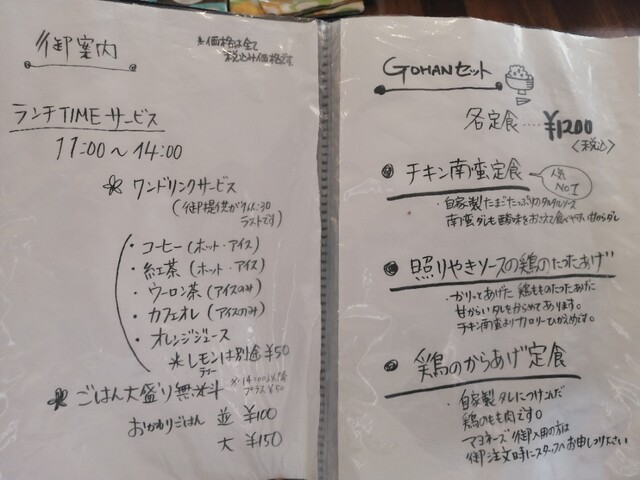 御案内
※価格は全て
税込み価格です
ランチTIMEサービス
11:00〜14:00
ワンドリンクサービス
ラストです)
・コーヒー(ホット・アイス)
・紅茶(ホット・アイス)
・ウーロン茶(アイスのみ)
・カフェオレ(アイスのみ)
・オレンジジュース
※レモンは別途¥50
ティー
ごはん大盛り無料
プラス¥50
おかわりごはん 並 ¥100
大 ¥150
GOHANセット
各定食……¥1200
<税込>
チキン南蛮定食
人気
NO1
・自家製たまごたっぷりのタルタルソース
南蛮ダレも酸味をおさえて食べやすい甘からダレ
照りやきソースの鶏のたつたあげ
・かりっとあげた鶏もものたつたあげに
甘からいタレをからめてあります。
チキン南蛮よりカロリーひかえめです。
鶏のからあげ定食
・自家製タレにつけこんだ
鶏のもも肉です。
マヨネーズ御入用の方は
御注文時にスタッフへお申しつけください